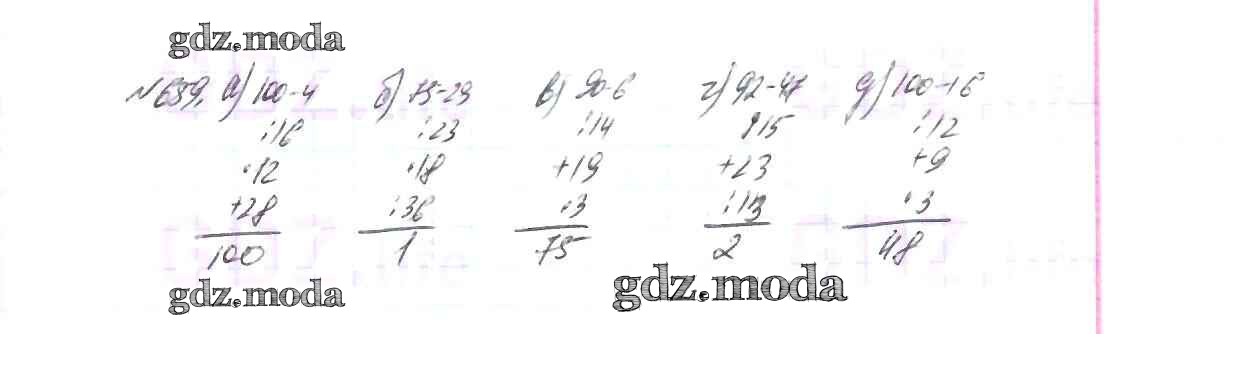 gdz.moda
№ 659. а) 100-4 б) 75-29 в) 90-6 г) 92-47 д) 100-16
:16 :23 :14 :15 :12
·12 ·18 +19 +23 +9
+28 :36 ·3 :13 ·3
100 1 75 2 48
gdz.moda gdz.moda